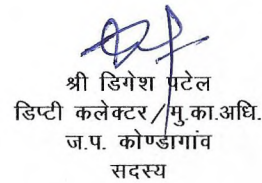 श्री डिगेश पटेल
डिप्टी कलेक्टर/मु.का.अधि.
ज.प. कोण्डागांव
सदस्य